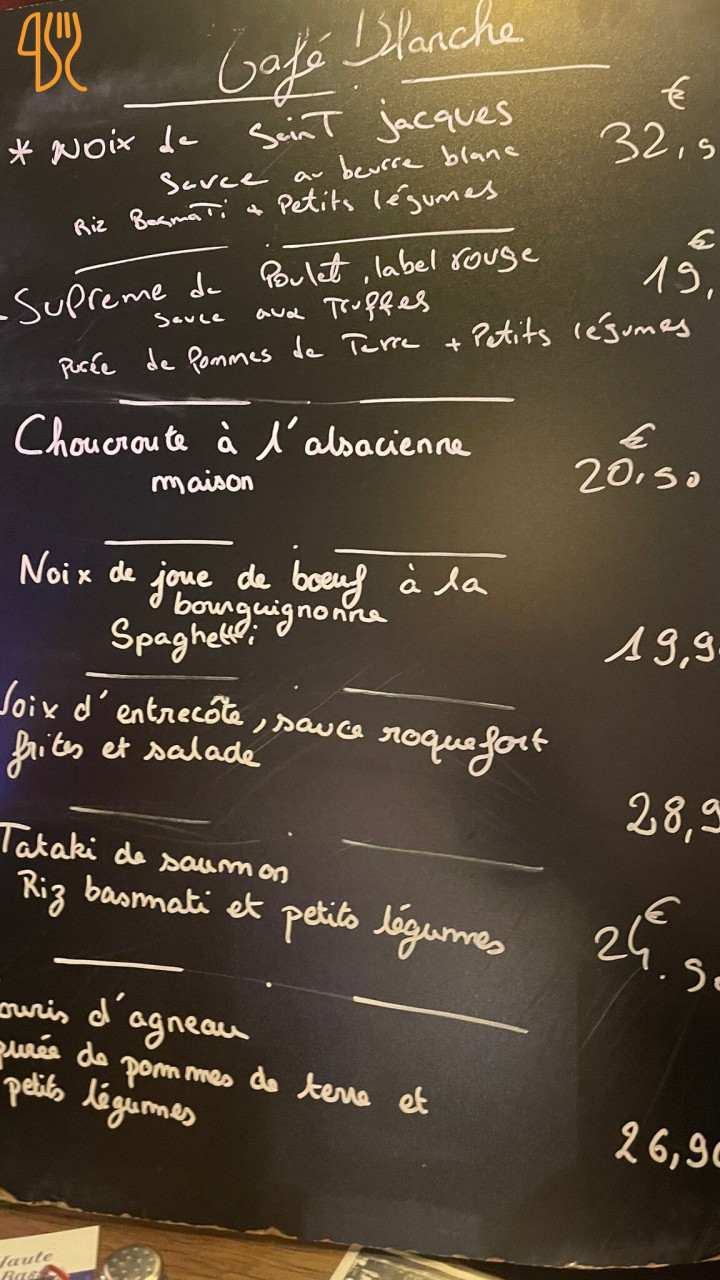 Café Blanche
€
* Noix de Saint jacques 32,9
Sauce au beurre blanc
Riz Basmati + Petits légumes
€
- Supreme de Poulet, label rouge 19,
Sauce aux Truffes
Purée de Pommes de Terre + Petits légumes
€
Choucroute à l'alsacienne 20,50
maison
Noix de joue de bœuf à la
bourguignonne
Spaghetti 19,9
Noix d'entrecôte, sauce roquefort
frites et salade
28,9
Tataki de saumon
€
Riz basmati et petits légumes 24.90
ouris d'agneau
purée de pommes de terre et
petits légumes
26,90
Haute